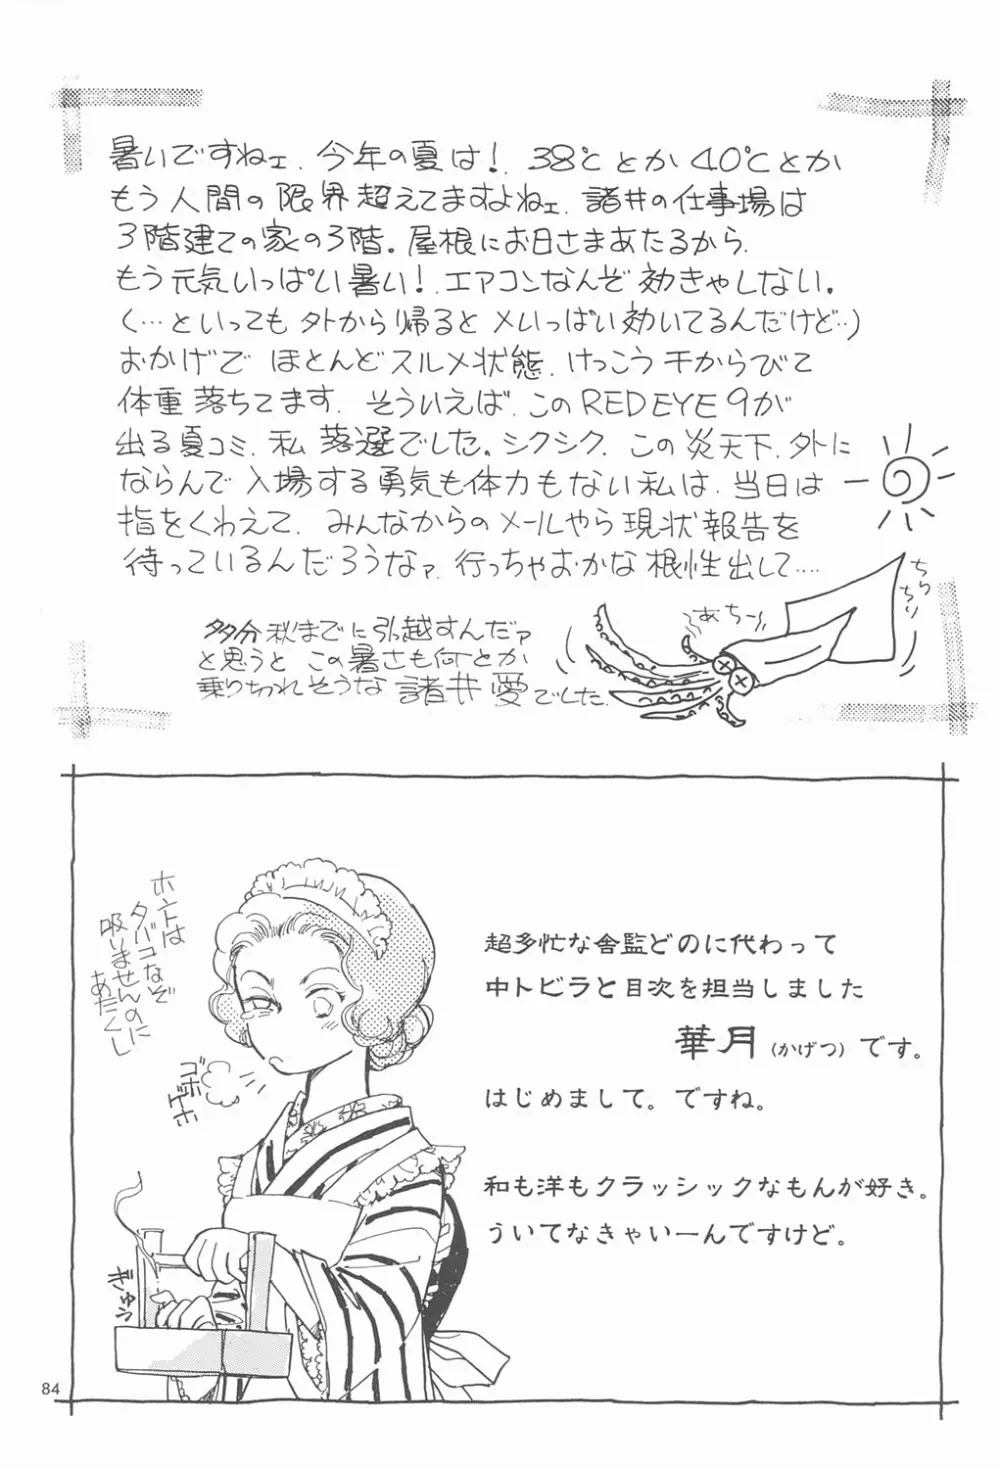 暑いですねェ.今年の夏は! 38℃とか40℃とか
もう人間の限界超えてますよねェ.諸井の仕事場は
3階建ての家の3階。屋根にお日さまあたるから.
もう元気いっぱい暑い!.エアコンなんぞ効きゃしない。
(…といっても外から帰るとメいっぱい効いてるんだけど…)
おかげでほとんどスルメ状態.けっこう干からびて
体重落ちてます.そういえば.このREDEYE9が
出る夏コミ.私落選でした。シクシク.この炎天下.外に
ならんで入場する勇気も体力もない私は.当日は
指をくわえて.みんなからのメールやら現状報告を
待っているんだろうなァ.行っちゃおかな根性出して‥‥
ちりちり
あちーぃ
多分秋までに引越すんだァ
と思うとこの暑さも何とか
乗りきれそうな諸井愛でした.
ホントは
タバコなぞ
吸いませんのに
あたくし
ゴホ
ゲホ
ぎゅう
超多忙な舎監どのに代わって
中トビラと目次を担当しました
華月(かげつ)です。
はじめまして。ですね。
和も洋もクラッシックなもんが好き。
ういてなきゃいーんですけど。
84